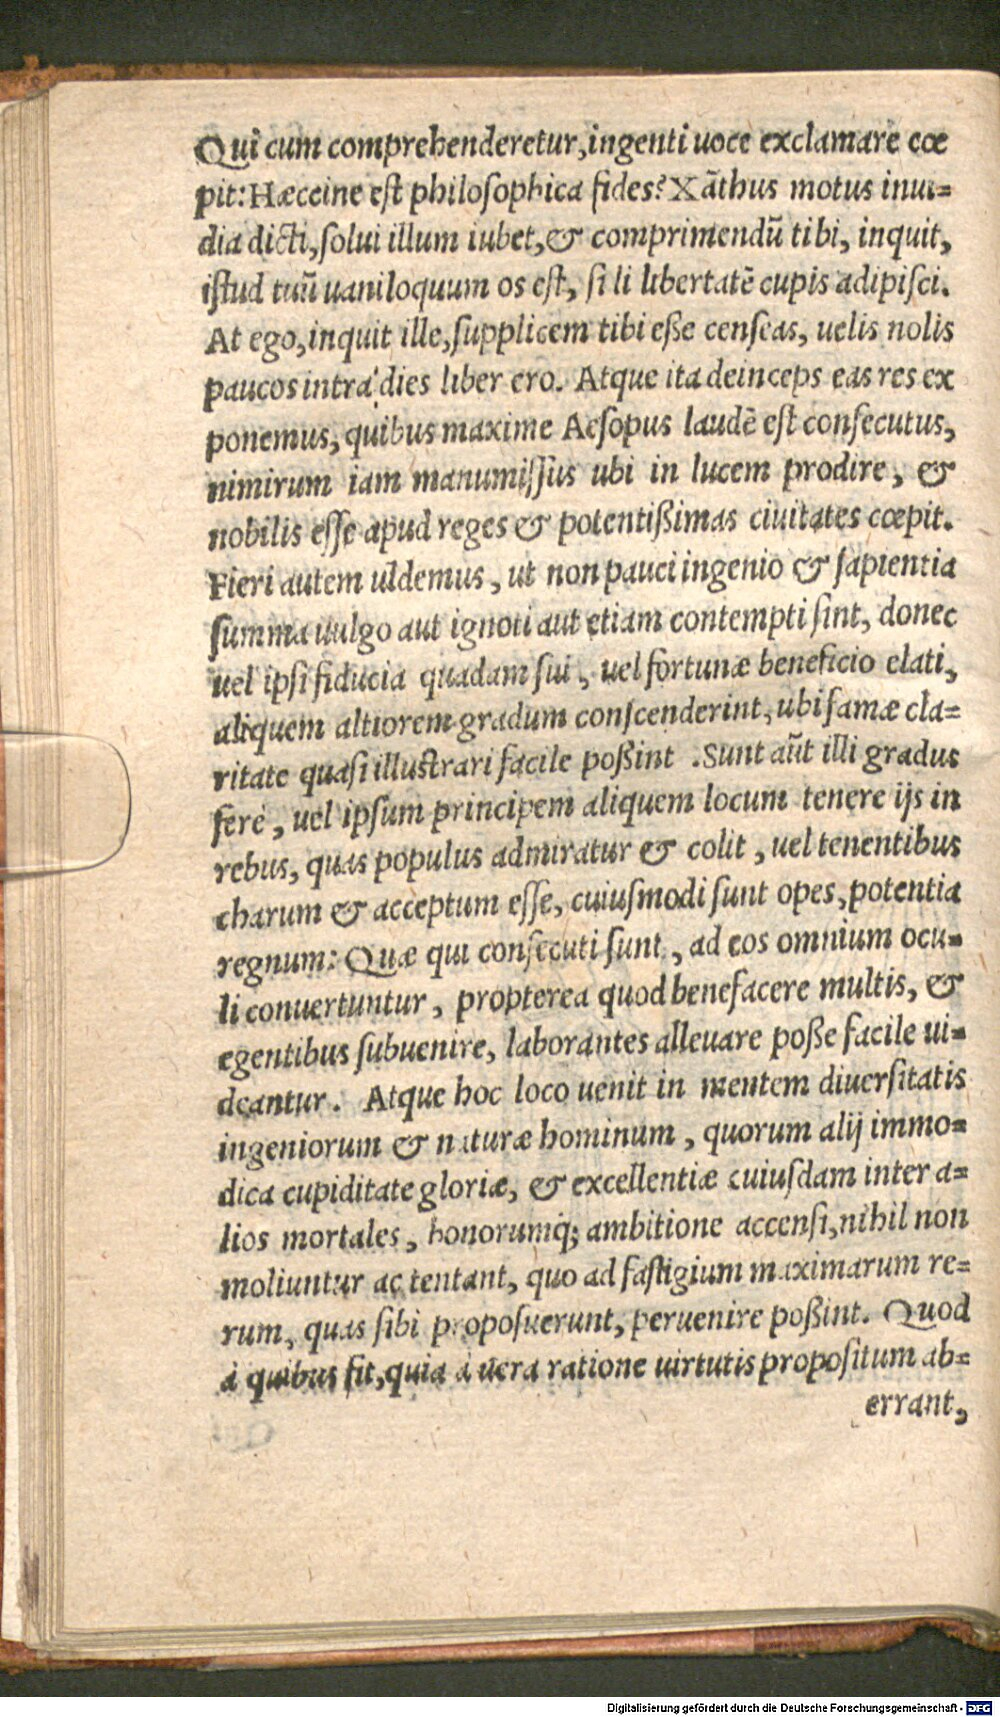 Qui cum comprehenderetur, ingenti uoce exclamare cœ
pit: Hæccine est philosophica fides? Xāthus motus inui=
dia dicti, solui illum iubet, & comprimendū tibi, inquit,
istud tuū uaniloquum os est, si li libertatē cupis adipisci.
At ego, inquit ille, supplicem tibi esse censeas, uelis nolis
paucos intra dies liber ero. Atque ita deinceps eas res ex
ponemus, quibus maxime Aesopus laudē est consecutus,
nimirum iam manumissus ubi in lucem prodire, &
nobilis esse apud reges & potentißimas ciuitates cœpit.
Fieri autem uidemus, ut non pauci ingenio & sapientia
summa uulgo aut ignoti aut etiam contempti sint, donec
uel ipsi fiducia quadam sui, uel fortunæ beneficio elati,
aliquem altiorem gradum conscenderint, ubi famæ cla=
ritate quasi illustrari facile poßint. Sunt aūt illi gradus
fere, uel ipsum principem aliquem locum tenere ijs in
rebus, quas populus admiratur & colit, uel tenentibus
charum & acceptum esse, cuiusmodi sunt opes, potentia
regnum: Quæ qui consecuti sunt, ad eos omnium ocu=
li conuertuntur, propterea quod benefacere multis, &
egentibus subuenire, laborantes alleuare poße facile ui=
deantur. Atque hoc loco uenit in mentem diuersitatis
ingeniorum & naturæ hominum, quorum alij immo=
dica cupiditate gloriæ, & excellentiæ cuiusdam inter a=
lios mortales, honorumq́; ambitione accensi, nihil non
moliuntur ac tentant, quo ad fastigium maximarum re=
rum, quas sibi proposuerunt, peruenire poßint. Quod
à quibus fit, quia à uera ratione uirtutis propositum ab=
errant,
Digitalisierung gefördert durch die Deutsche Forschungsgemeinschaft - DFG